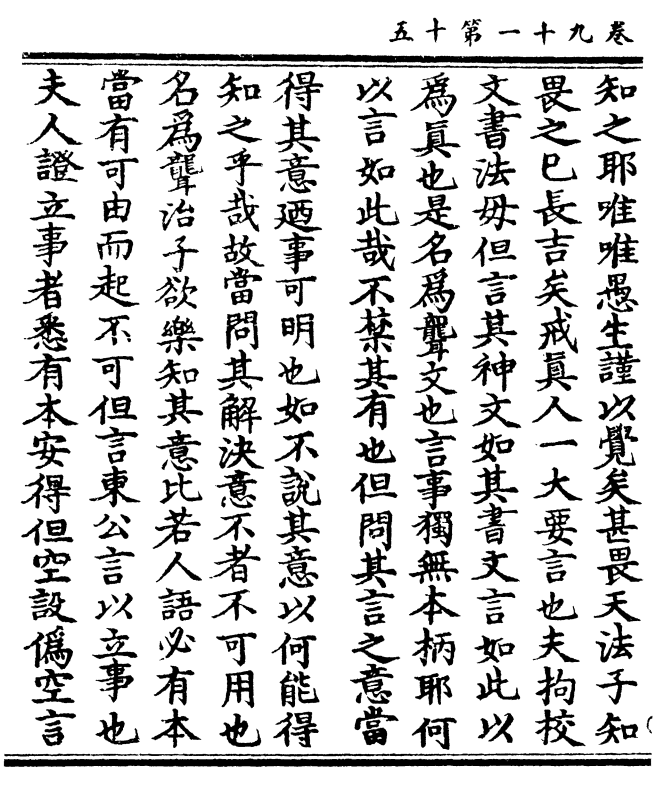 卷九十一第十五
知之耶唯唯愚生謹以覺矣甚畏天法子知
畏之已長吉矣戒眞人一大要言也夫拘校
文書法毋但言其神文如其書文言如此以
爲眞也是名爲聾文也言事獨無本柄耶何
以言如此哉不禁其有也但問其言之意當
得其意迺事可明也如不說其意以何能得
知之乎哉故當問其解決意不者不可用也
名爲聾治子欲樂知其意比若人語必有本
當有可由而起不可但言東公言以立事也
夫人證立事者悉有本安得但空設僞空言